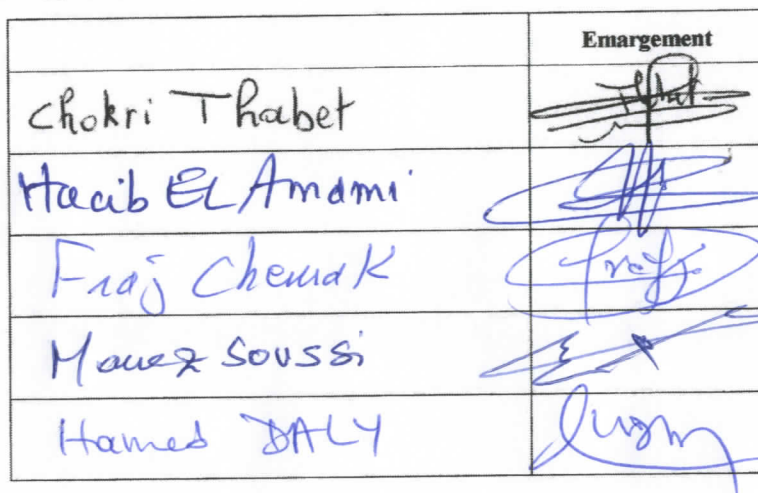 Emargement
Chokri Thabet
Hacib EL Amami
Fraj Chemak
Mouez SOUSSi
Hamed DALY